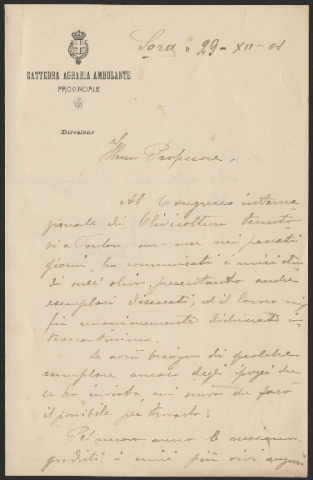 CATTEDRA AGRARIA AMBULANTE
PROVINCIALE
Direzione
Sora, 29-XII-08
Illmo Professore,
Al Congresso interna
zionale di Olivicoltura tenuto
si a Toulon nei passati
giorni, ho comunicati i
di sui olivo, presentando anche
esemplari disseccati, ed il lavoro mi
fu unanimemente dichiarato in
teressantissimo.
Se avrà bisogno di qualche
esemplare ancora degli
ce ho mi scriva che farò
il possibile per trovarlo.
Pel nuovo anno le
graditi i miei più vivi auguri